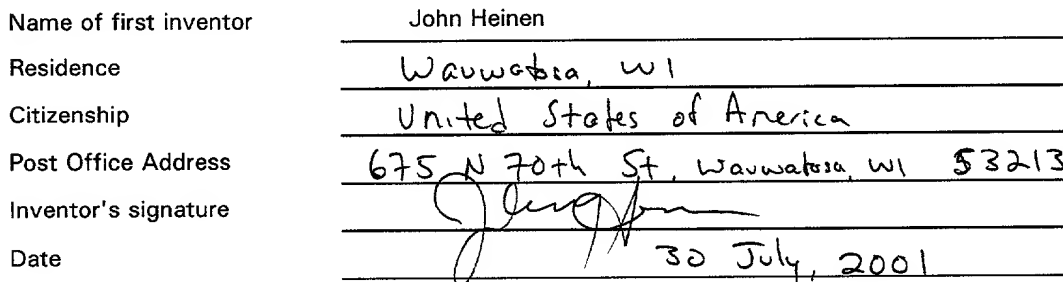 Name of first inventor John Heinen
Residence Wauwatosa, WI
Citizenship United States of America
Post Office Address 675 N 70th St, Wauwatosa, WI 53213
Inventor's signature
Date 30 July, 2001